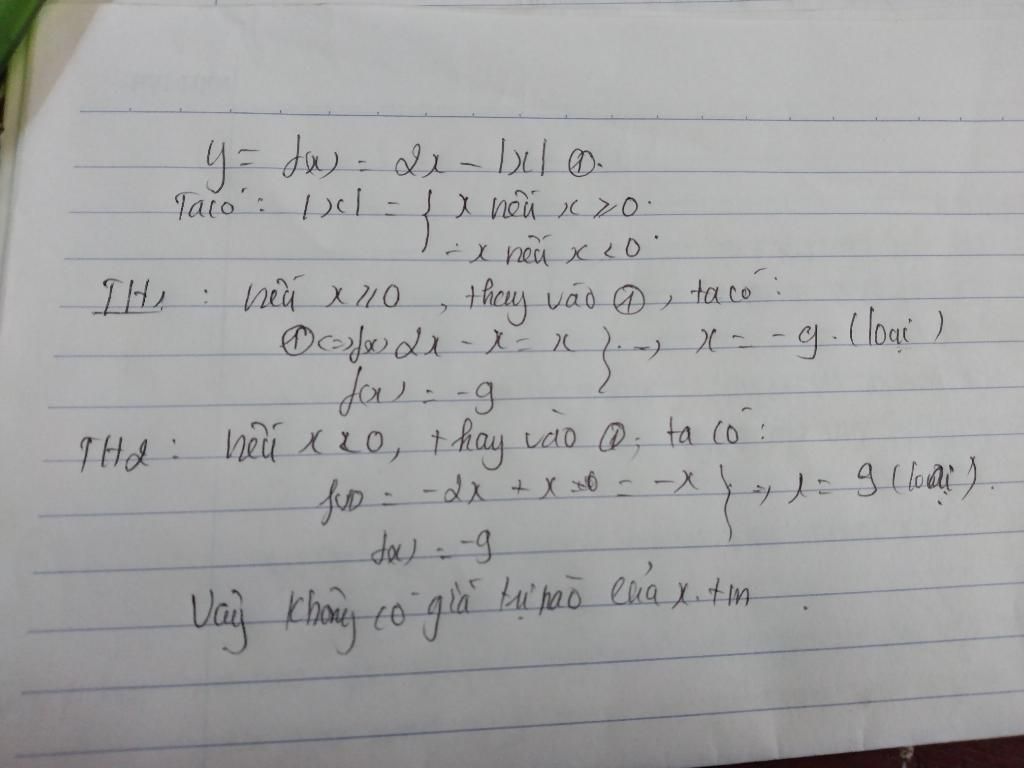 y = f(x) = 2x - |x| ①.
Ta có: |x| = { x nếu x ≥ 0.
-x nếu x < 0.
TH1: nếu x ≥ 0, thay vào ①, ta có:
① <=> f(x) 2x - x = x } => x = -9. (loại)
f(x) = -9
TH2: nếu x < 0, thay vào ①, ta có:
f(x) = -2x + x = -x } => x = 9 (loại).
f(x) = -9
Vậy không có giá trị nào của x. tm.